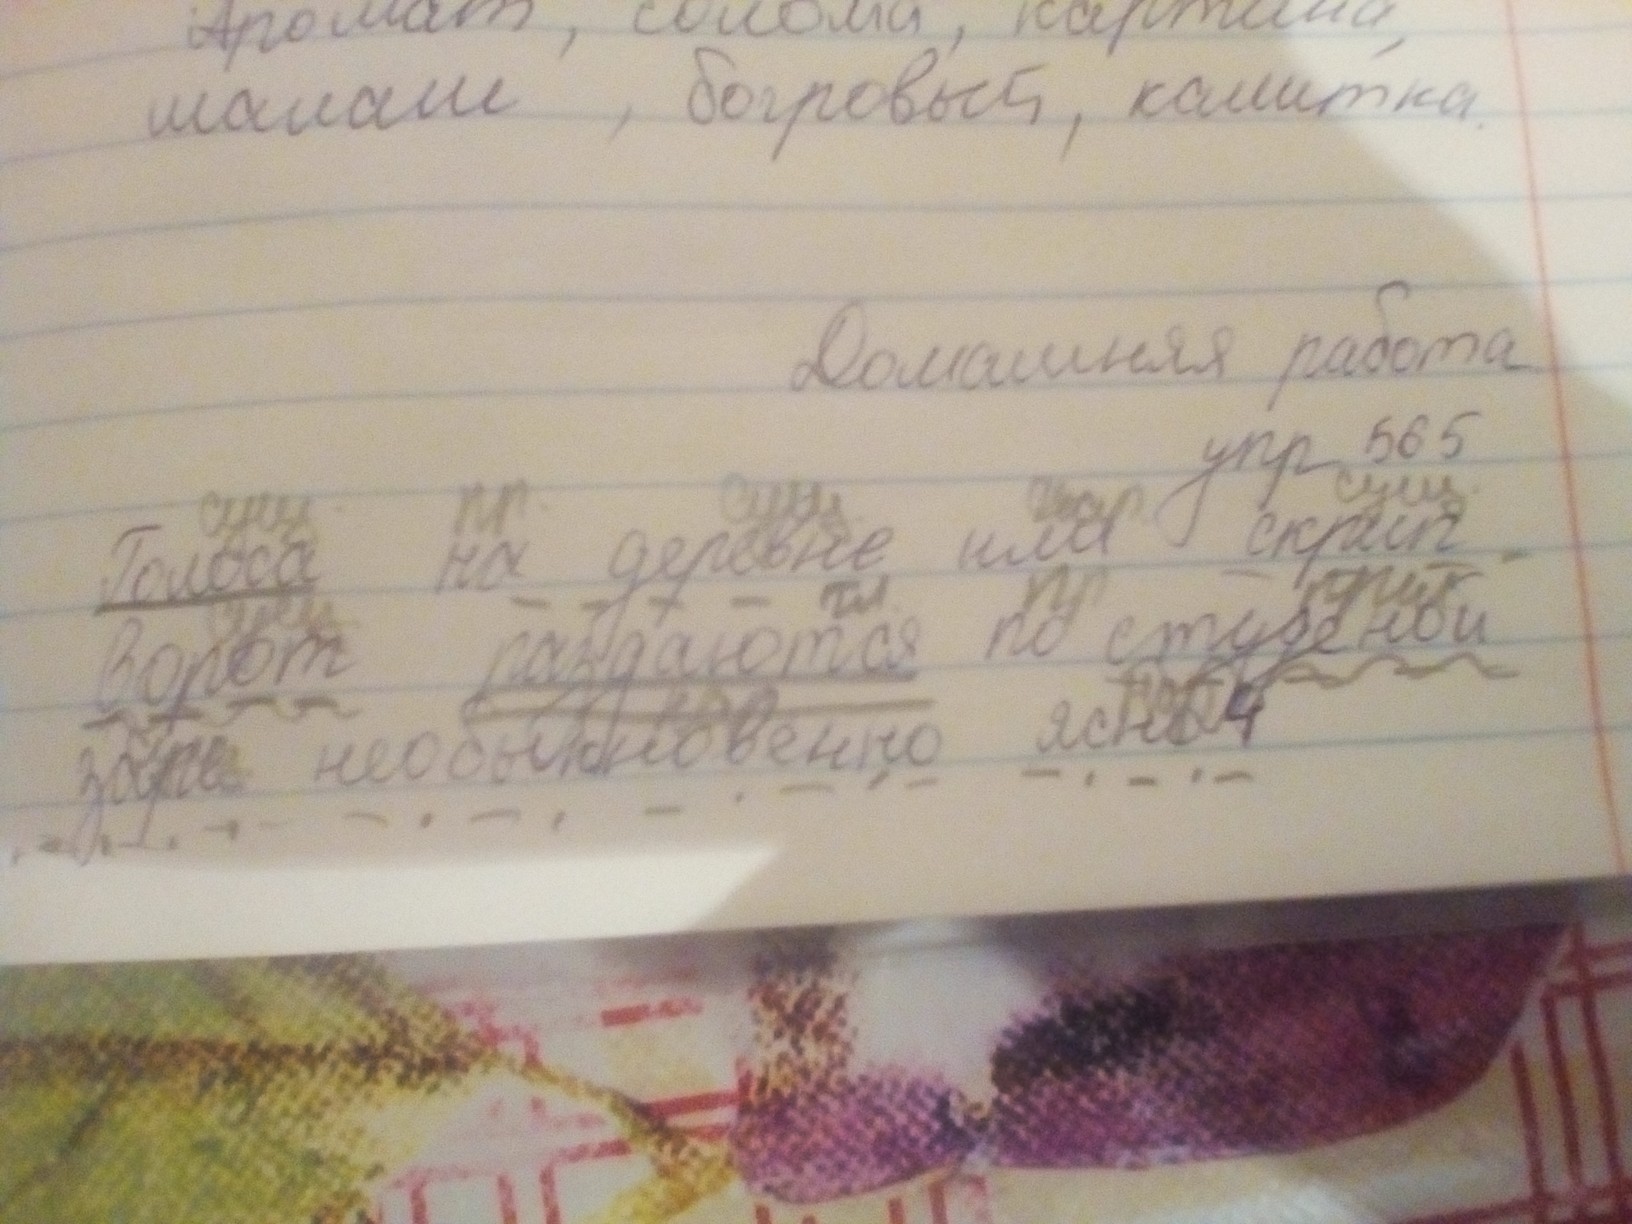 Аромат, солома, картина,
шалаш, богровый, калитка.
Домашняя работа
упр 565
сущ. пр. сущ. сущ.
Голоса на деревне или скрип
сущ. гл. пр прил
ворот раздаются по студеной
заре необыкновенно ясно4